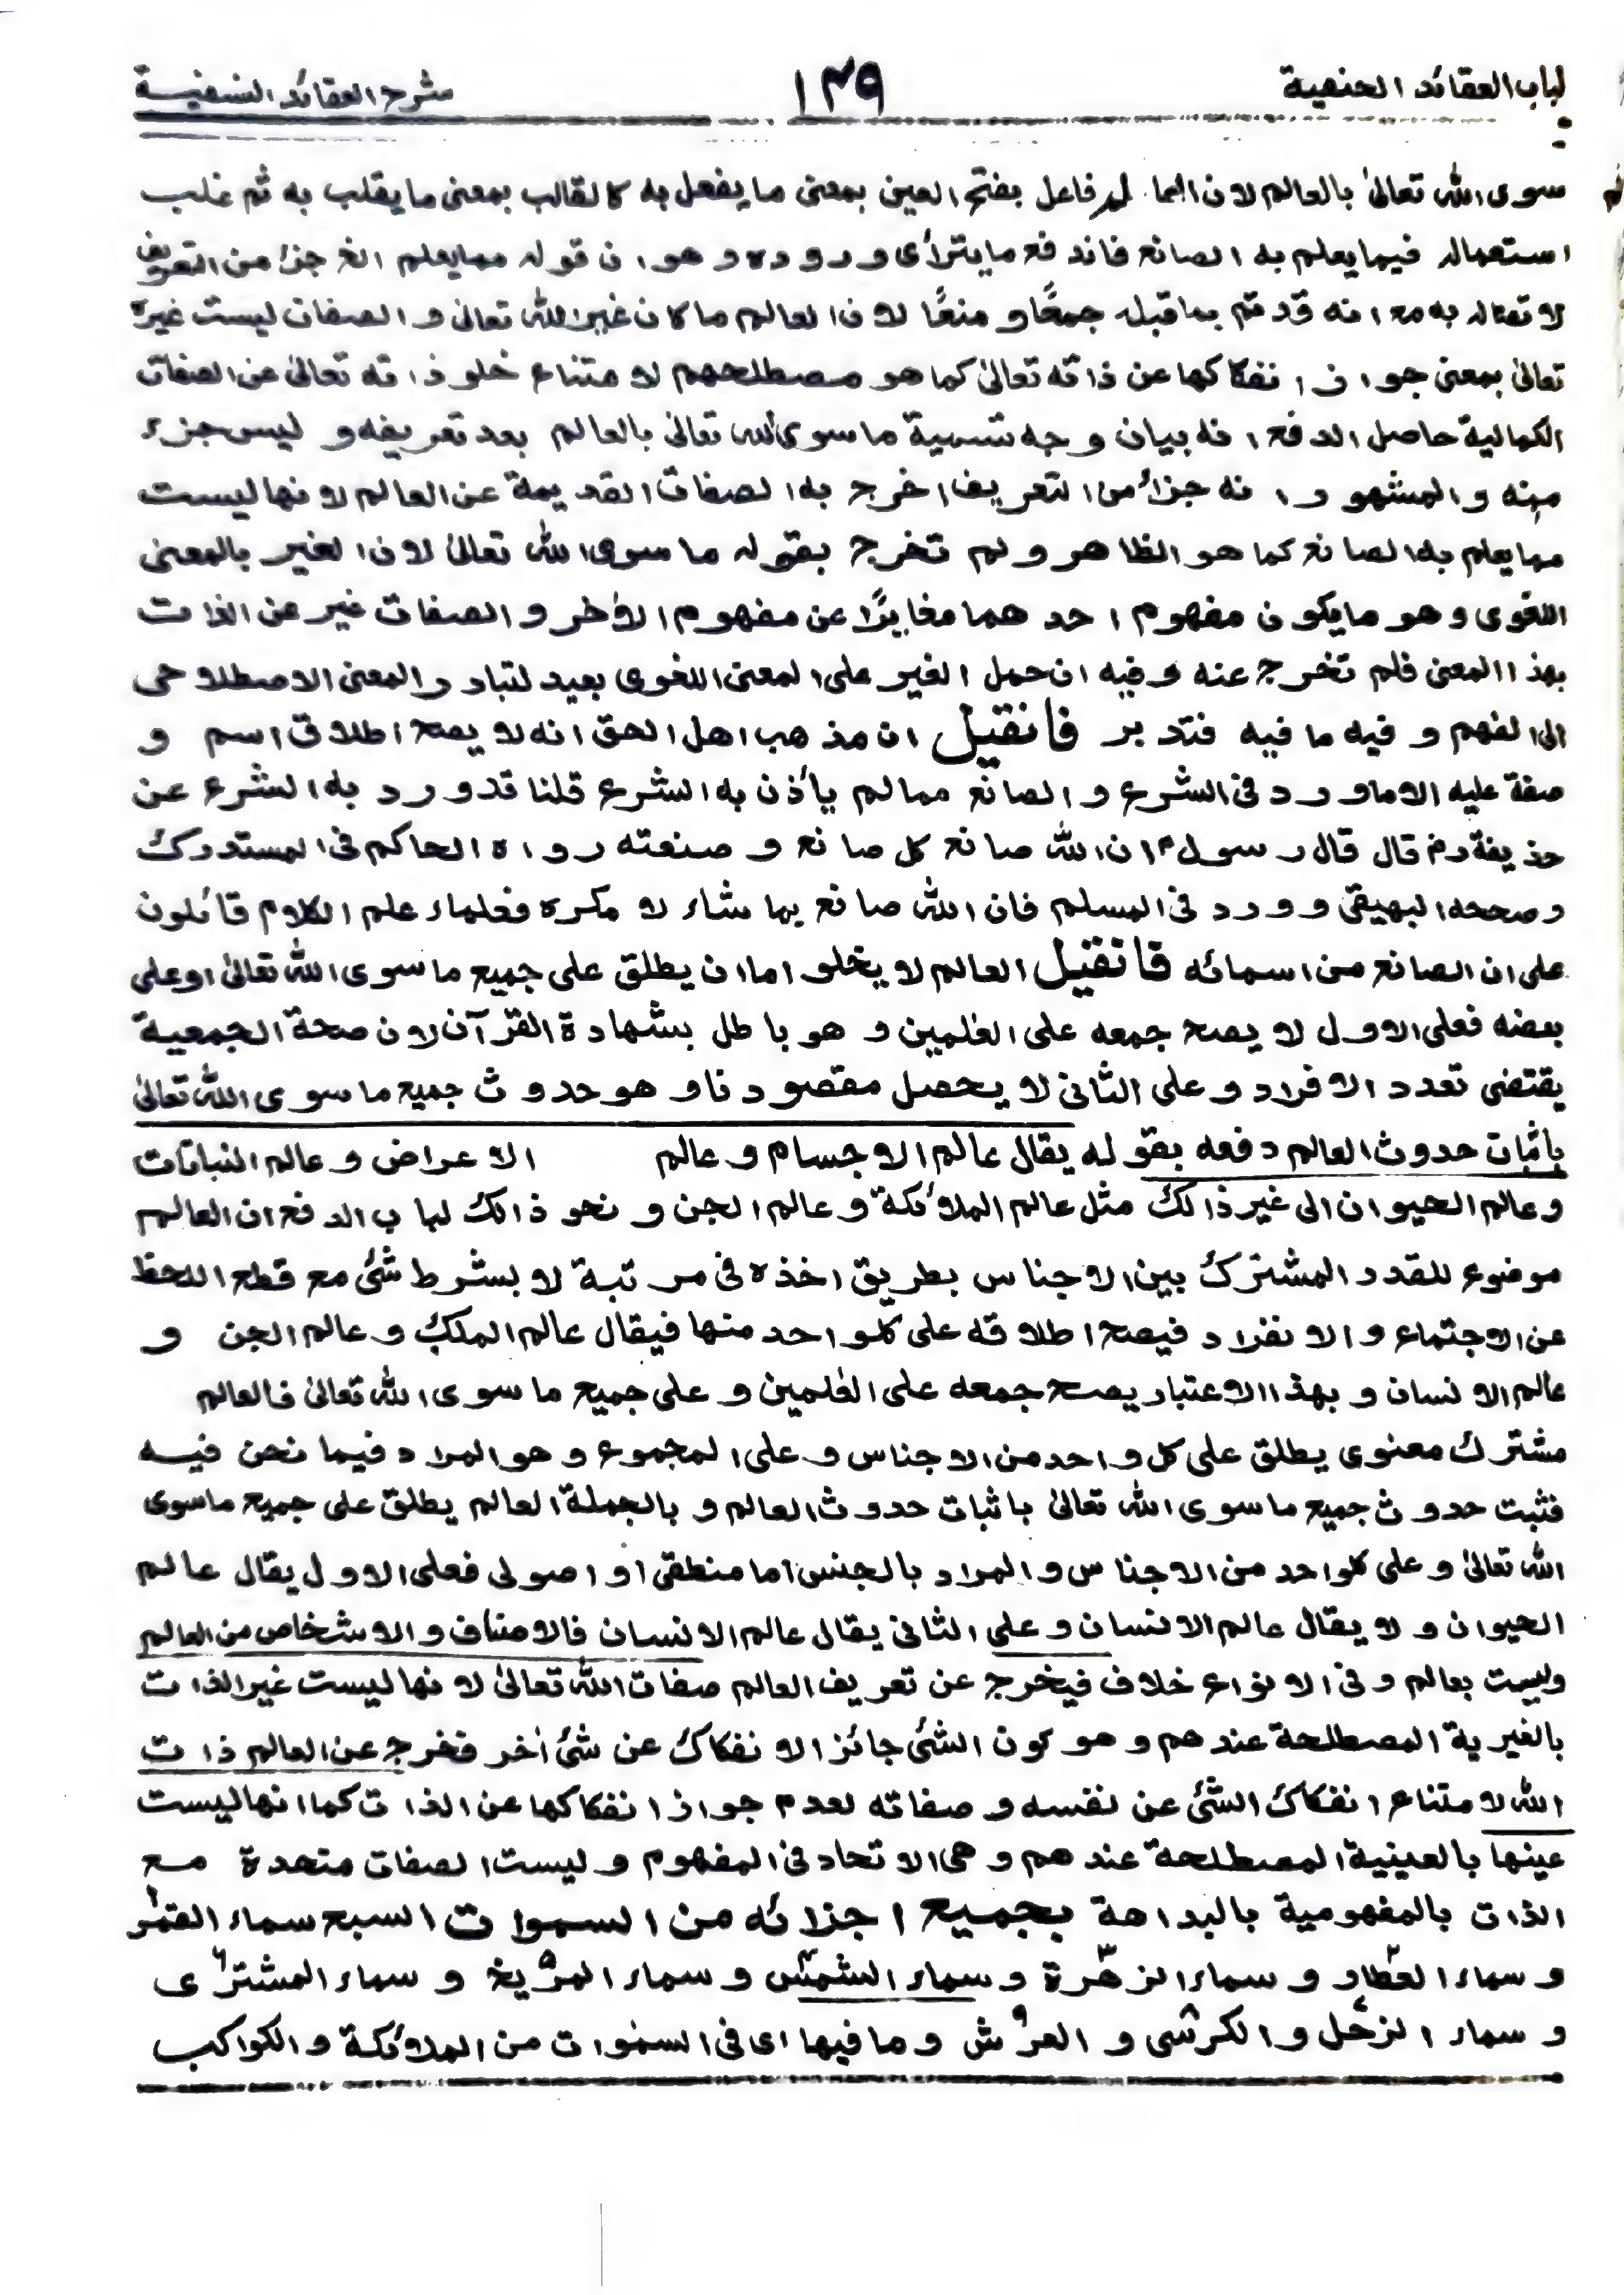 لباب العقائد الحنفية ١٣٩ شرح العقائد النسفية
سوى الله تعالىٰ بالعالم لان العالم فاعل بفتح العين بمعنى ما يفعل به كالقالب بمعنى ما يقلب به ثم غلب
استعماله فيما يعلم به الصانع فاندفع ما يترأى وروده وهو ان قوله مما يعلم الخ جزء من التعريف
لاتصاله به مع انه قد تم بما قبله جمعًا و منعًا لان العالم ما كان غير الله تعالىٰ و الصفات ليست غيره
تعالىٰ بمعنى جواز انفكاكها عن ذاته تعالىٰ كما هو مصطلحهم لامتناع خلو ذاته تعالىٰ عن الصفات
الكمالية حاصل الدفع انه بيان وجه تسمية ما سوى الله تعالىٰ بالعالم بعد تعريفه و ليس جزء
منه و المشهور انه جزء من التعريف اخرج به الصفات القديمة عن العالم لانها ليست
مما يعلم به الصانع كما هو الظاهر ولم تخرج بقوله ما سوى الله تعالىٰ لان الغير بالمعنى
اللغوى وهو ما يكون مفهوم احدهما مغايرًا عن مفهوم الاٰخر و الصفات غير عن الذات
بهذا المعنى فلم تخرج عنه وفيه ان حمل الغير على المعنى اللغوى بعيد لتبادر المعنى الاصطلاحى
الى الفهم و فيه ما فيه فتدبر فانقيل ان مذهب اهل الحق انه لا يصح اطلاق اسم و
صفة عليه الا ما ورد فى الشرع و الصانع مما لم يأذن به الشرع قلنا قد ورد به الشرع عن
حذيفة رض قال قال رسولﷺ ان الله صانع كل صانع و صنعته رواه الحاكم فى المستدرك
وصححه البهيقى وورد فى المسلم فان الله صانع بما شاء لا مكره فعلماء علم الكلام قائلون
على ان الصانع من اسمائه فانقيل العالم لا يخلو اما ان يطلق على جميع ما سوى الله تعالىٰ او على
بعضه فعلى الاول لا يصح جمعه على العٰلمين و هو باطل بشهادة القرآن لان صحة الجمعية
يقتضى تعدد الافراد و على الثانى لا يحصل مقصودنا و هو حدوث جميع ما سوى الله تعالىٰ
باثبات حدوث العالم دفعه بقوله يقال عالم الاجسام و عالم الاعراض و عالم النباتات
و عالم الحيوان الى غير ذالك مثل عالم الملائكة و عالم الجن و نحو ذالك لباب الدفع ان العالم
موضوع للقدر المشترك بين الاجناس بطريق اخذه فى مرتبة لا بشرط شئ مع قطع اللحظ
عن الاجتماع و الانفراد فيصح اطلاقه على كلواحد منها فيقال عالم الملك و عالم الجن و
عالم الانسان و بهذا الاعتبار يصح جمعه على العٰلمين و على جميع ما سوى الله تعالىٰ فالعالم
مشترك معنوى يطلق على كل واحد من الاجناس و على المجموع و هو المراد فيما نحن فيه
فثبت حدوث جميع ما سوى الله تعالىٰ باثبات حدوث العالم و بالجملة العالم يطلق على جميع ماسوى
الله تعالىٰ و على كلواحد من الاجناس و المراد بالجنس اما منطقى او اصولى فعلى الاول يقال عالم
الحيوان و لا يقال عالم الانسان و على الثانى يقال عالم الانسان فالاصناف و الاشخاص من العالم
وليست بعالم و فى الانواع خلاف فيخرج عن تعريف العالم صفات الله تعالىٰ لانها ليست غير الذات
بالغيرية المصطلحة عندهم و هو كون الشئ جائز الانفكاك عن شئ اٰخر فخرج عن العالم ذات
الله لامتناع انفكاك الشئ عن نفسه و صفاته لعدم جواز انفكاكها عن الذات كما انها ليست
عينها بالعينية المصطلحة عندهم و هى الاتحاد فى المفهوم و ليست الصفات متحدة مع
الذات بالمفهومية بالبداهة بجميع اجزائه من السموات السبع سماء القمر١
و سماء العطارد٢ و سماء الزهرة٣ و سماء الشمس٤ و سماء المريخ٥ و سماء المشترى٦
و سماء الزحل٧ و الكرسى٨ و العرش٩ و ما فيها اى فى السمٰوات من الملائكة و الكواكب